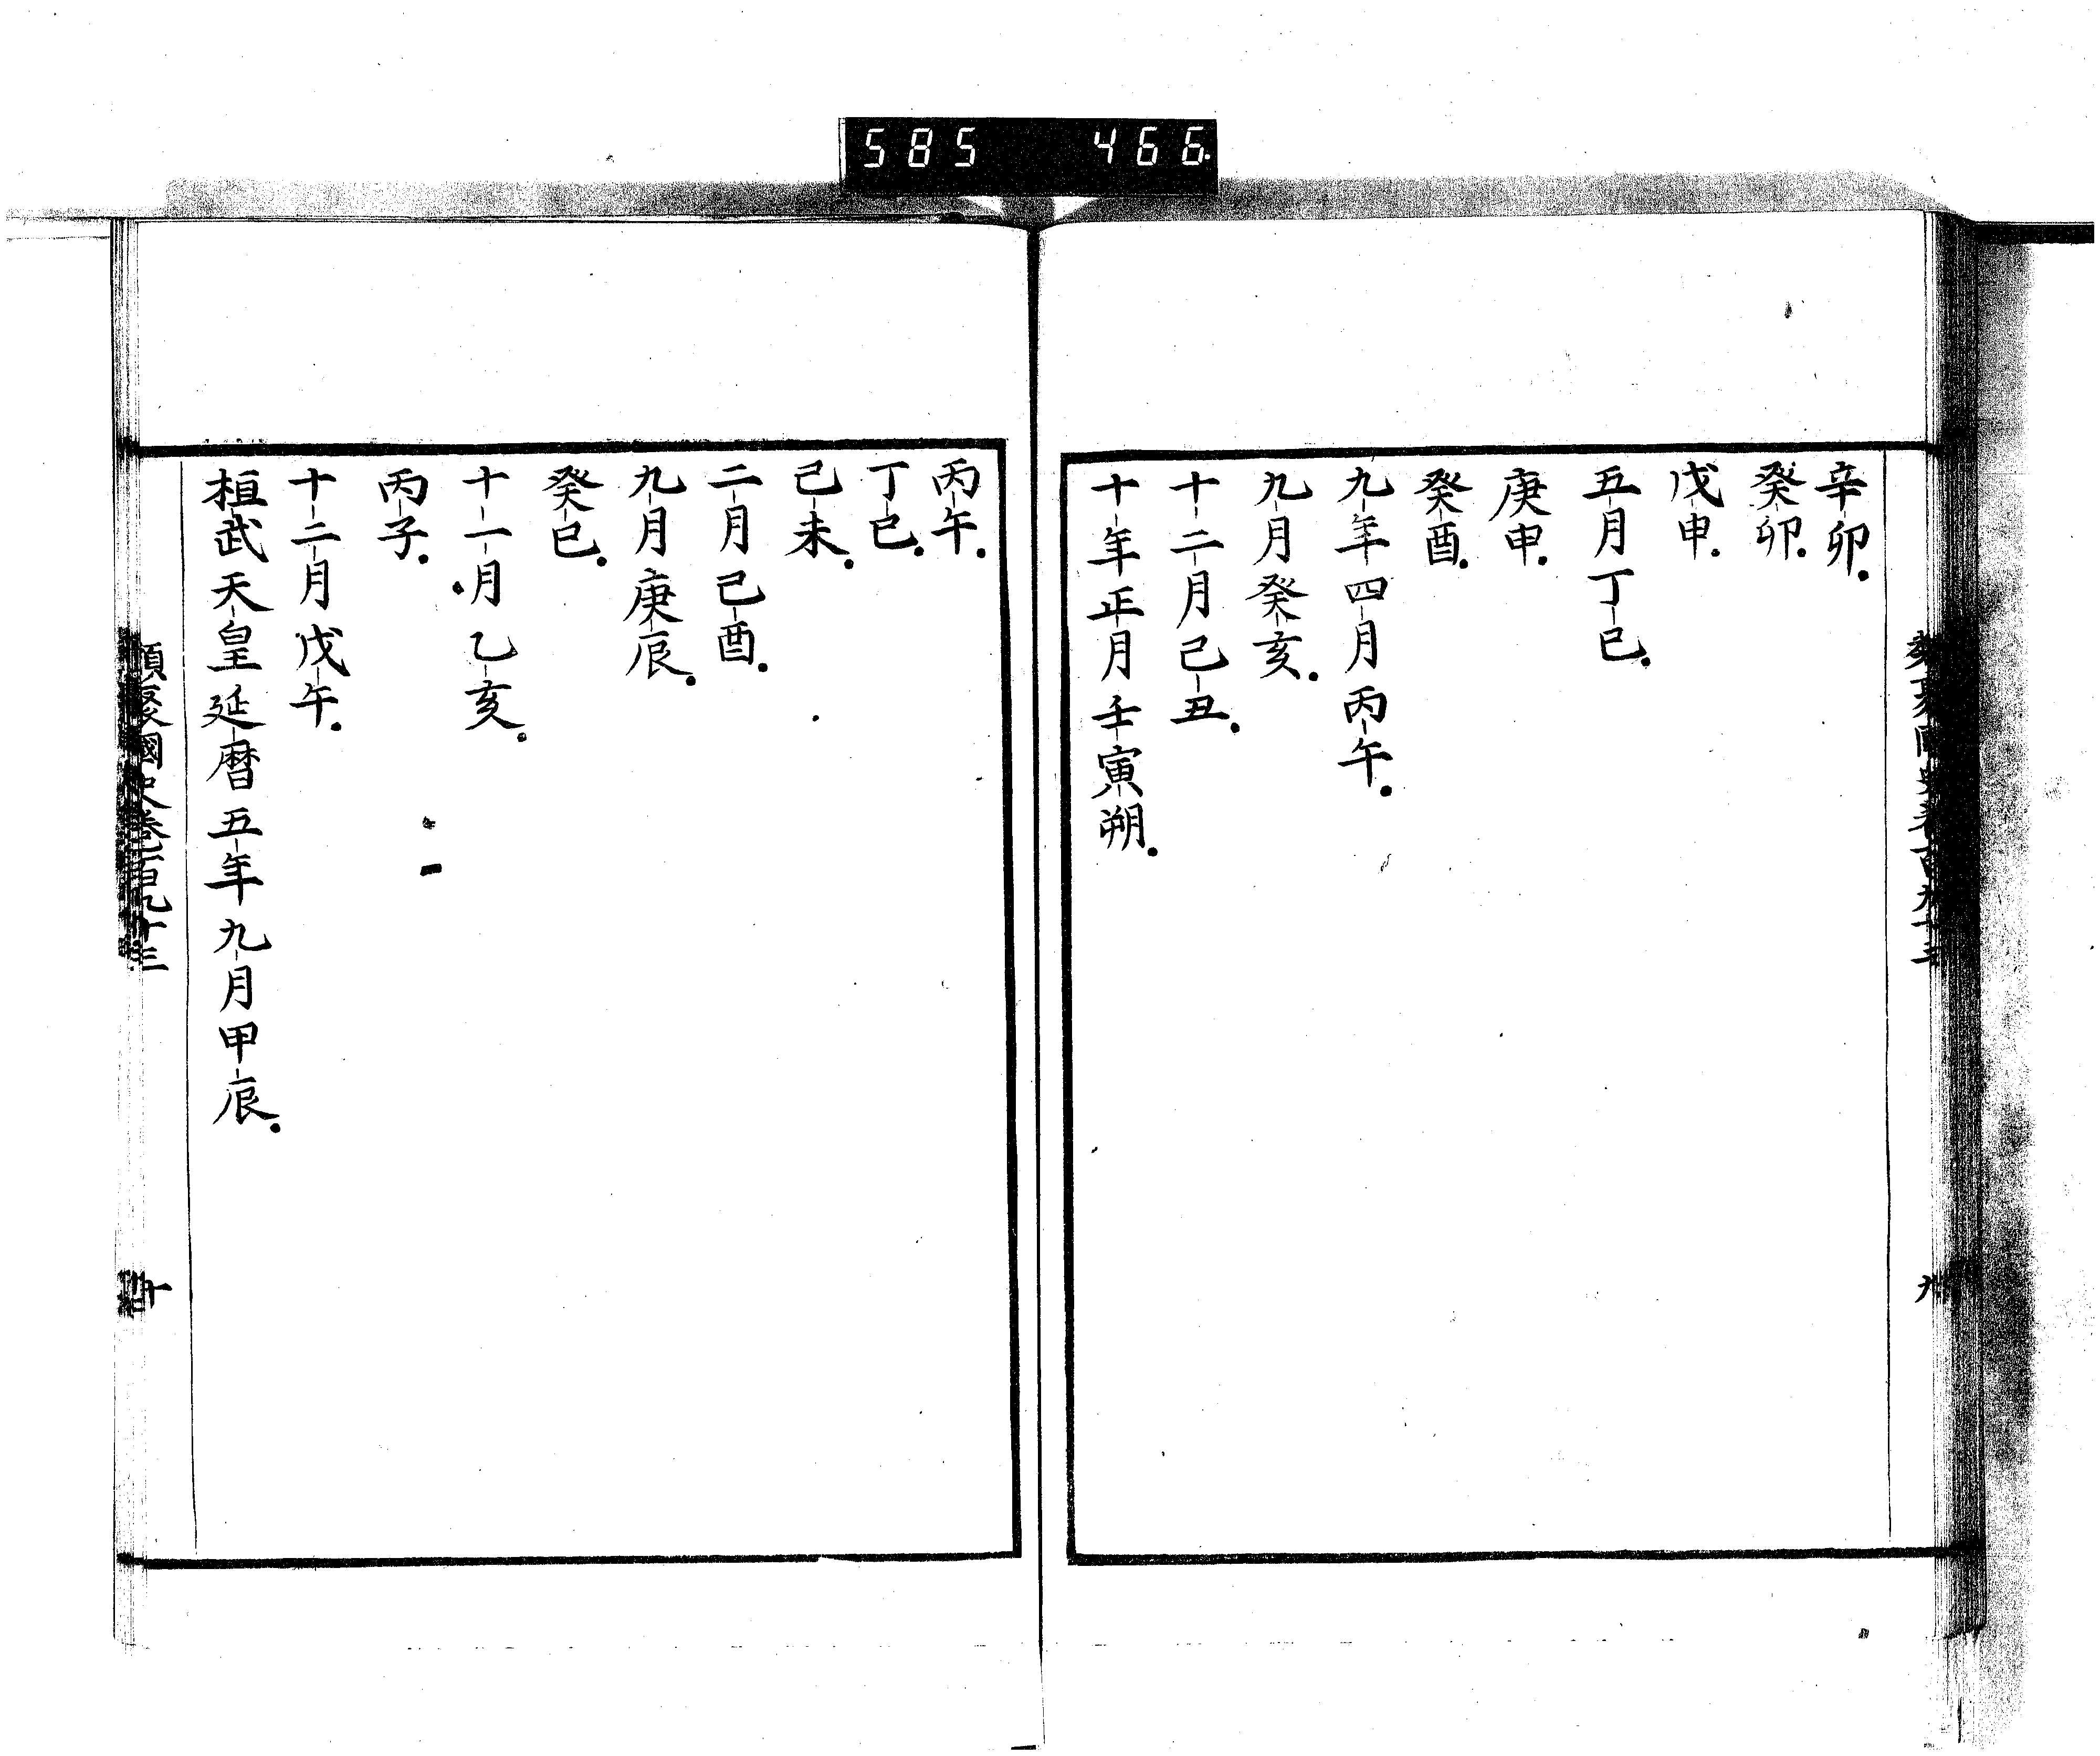 585 466
辛卯.
癸卯.
戊申.
五月丁巳.
庚申.
癸酉.
九年四月丙午.
九月癸亥.
十二月己丑.
十年正月壬寅朔.
丙午.
丁巳.
己未.
二月己酉.
九月庚辰.
癸巳.
十一月乙亥.
丙子.
十二月戊午.
桓武天皇延暦五年九月甲辰.
類聚國史卷百九十三
十